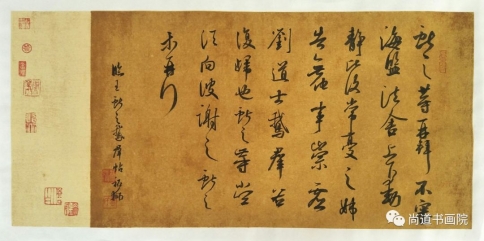 獻之等再拜不審
海鹽諸舍上下動
靜比復常憂之姉
告無事崇虛
劉道士鵞羣並
復歸也獻之等當
須向彼謝之獻之
等再拜
臨王獻之鵞羣帖
尚道书画院